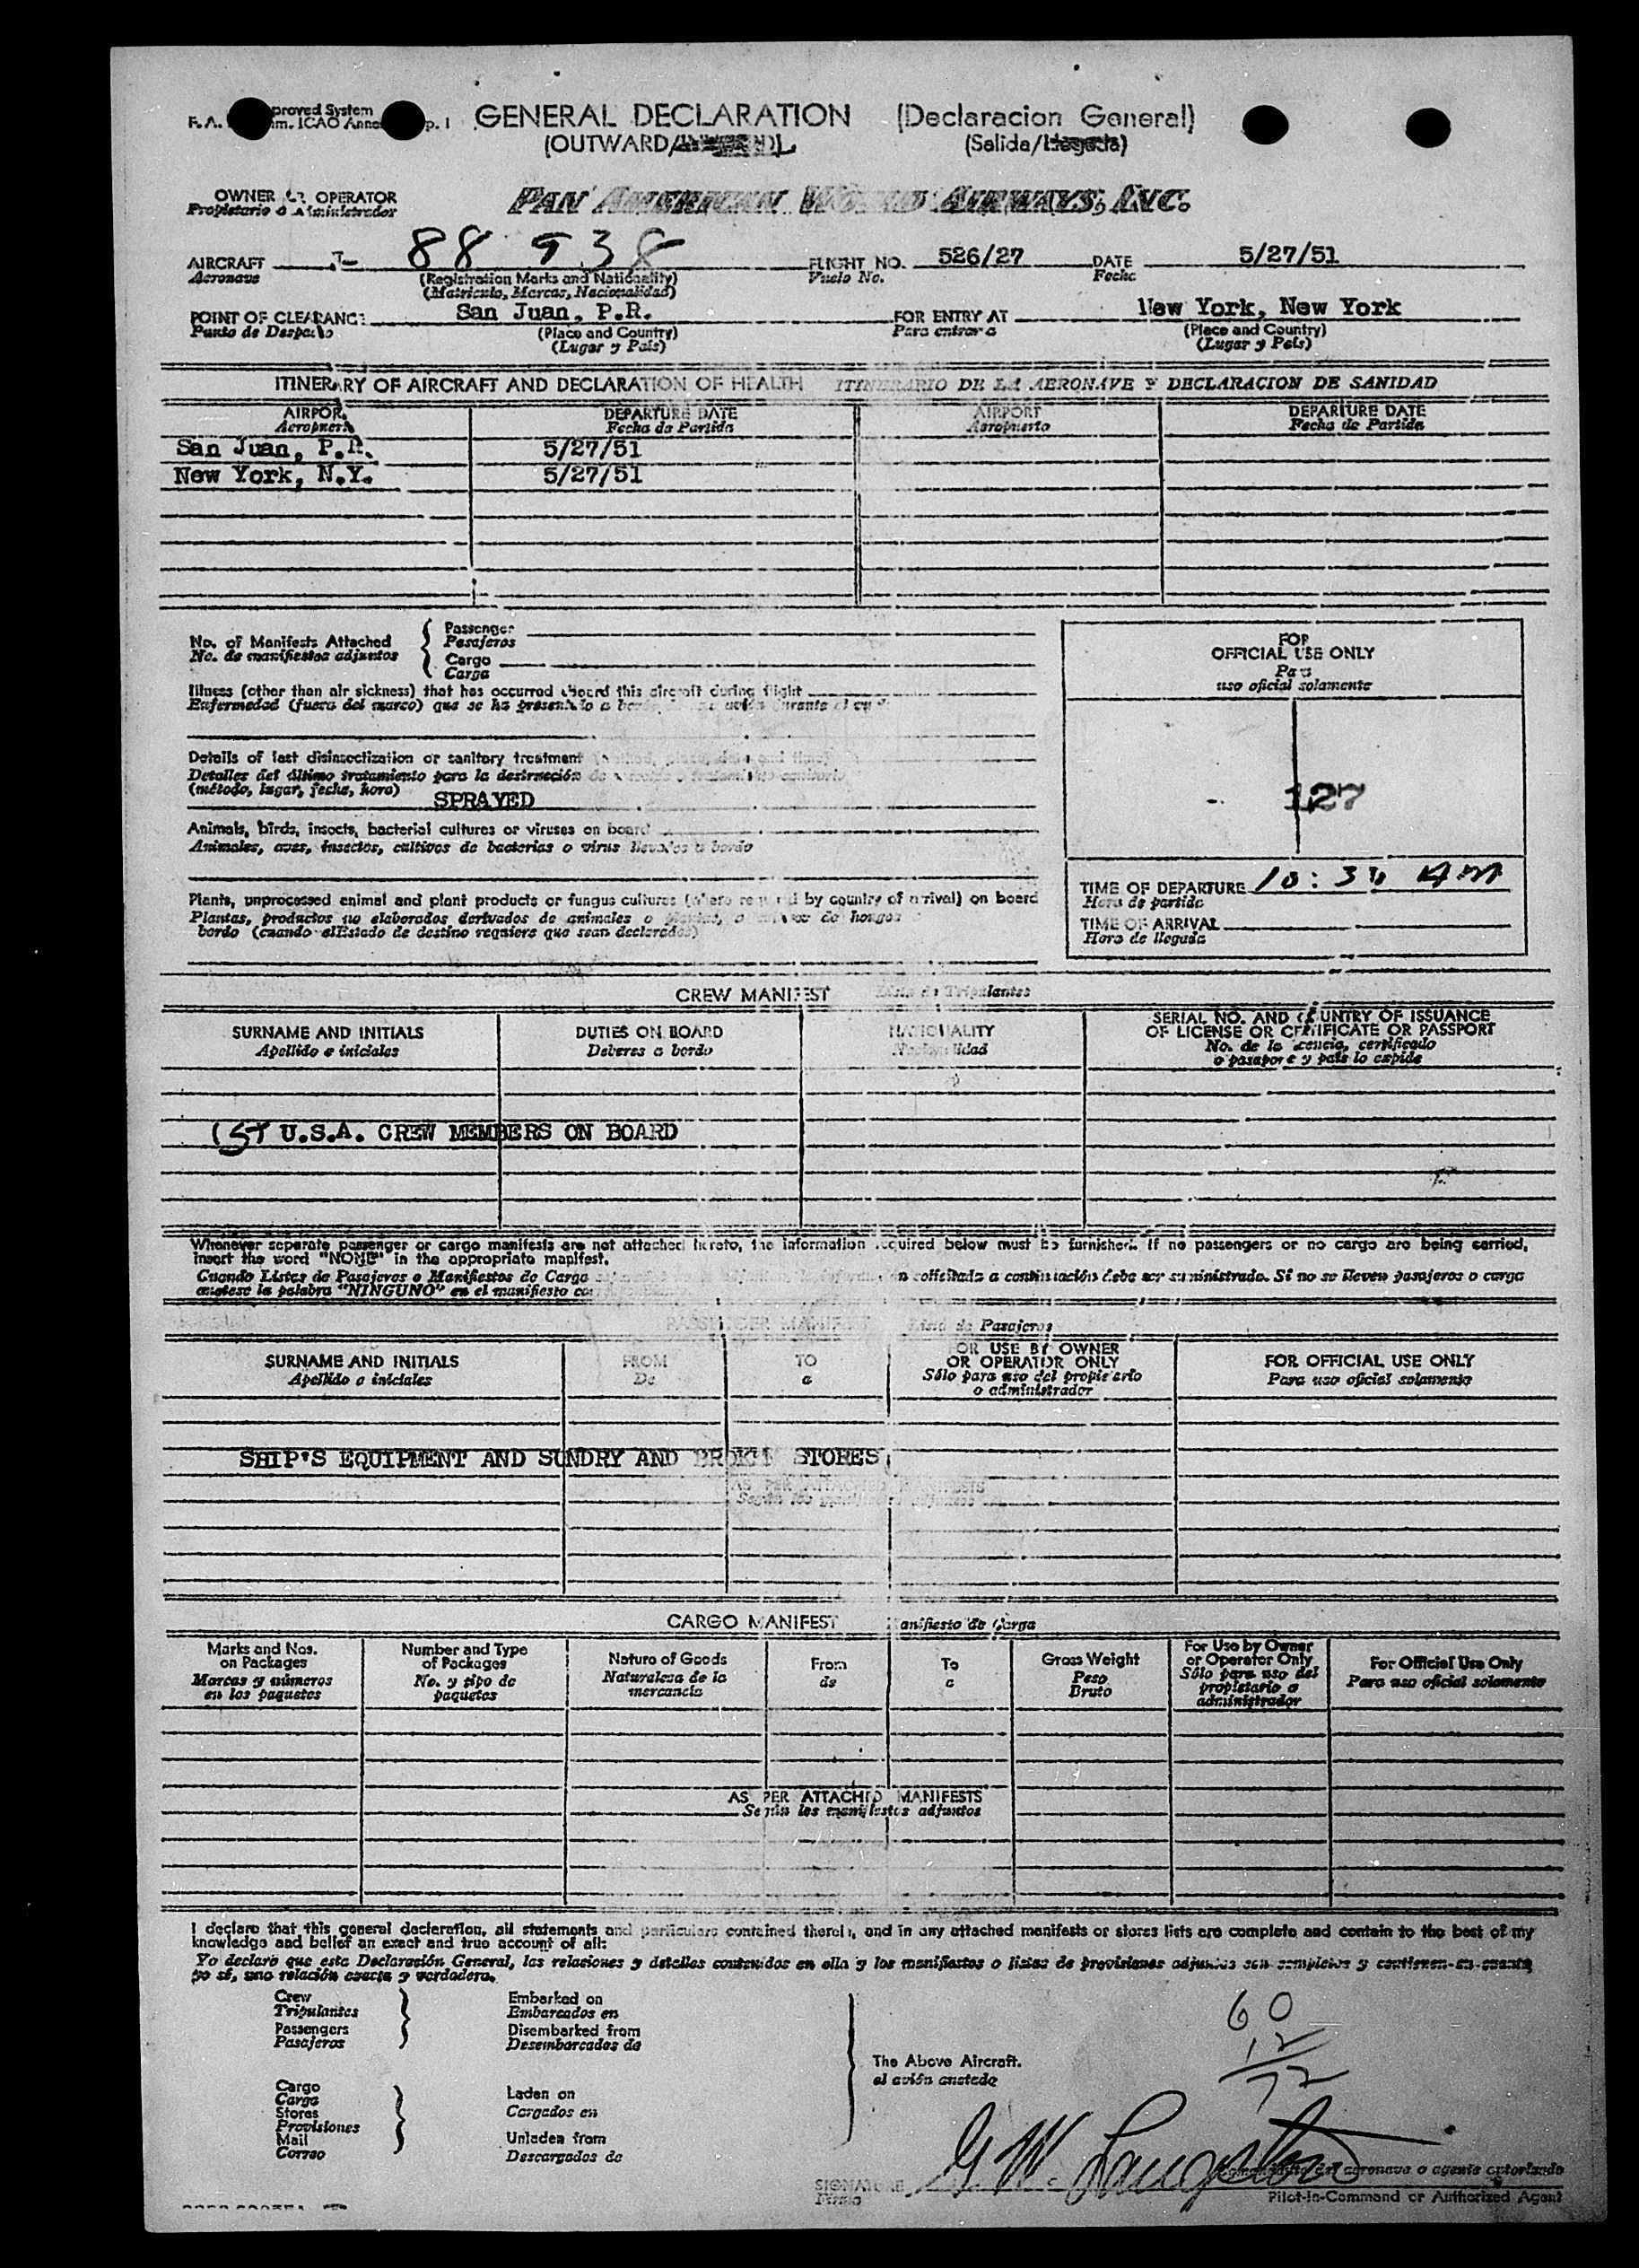 F.A. proved System
m. ICAO Anne p. 1
GENERAL DECLARATION (Declaracion General)
(OUTWARD/ (Salida/Llegada)
OWNER OR OPERATOR
Propietario ó Administrador
PAN AMERICAN WORLD AIRWAYS, INC.
AIRCRAFT 88 938 FLIGHT NO. 526/27 DATE 5/27/51
Aeronave (Registration Marks and Nationality) Vuelo No. Fecha
(Matricula, Marcas, Nacionalidad)
POINT OF CLEARANCE San Juan, P.R. FOR ENTRY AT New York, New York
Punto de Despacho (Place and Country) Para entrar a (Place and Country)
(Lugar y País) (Lugar y País)
ITINERARY OF AIRCRAFT AND DECLARATION OF HEALTH ITINERARIO DE LA AERONAVE Y DECLARACION DE SANIDAD
AIRPORT DEPARTURE DATE AIRPORT DEPARTURE DATE
Aeropuerto Fecha de Partida Aeropuerto Fecha de Partida
San Juan, P.R. 5/27/51
New York, N.Y. 5/27/51
No. of Manifests Attached
No. de manifiestos adjuntos
Passenger
Pasajeros
Cargo
Carga
Illness (other than air sickness) that has occurred aboard this aircraft during flight
Enfermedad (fuera del mareo) que se ha presentado a bordo avión durante el
Details of last disinsectization or sanitary treatment (method, place, date and time)
Detalles del último tratamiento para la destrucción de
(método, lugar, fecha, hora) SPRAYED
Animals, birds, insects, bacterial cultures or viruses on board
Animales, aves, insectos, cultivos de bacterias o virus llevados a bordo
Plants, unprocessed animal and plant products or fungus cultures (where required by country of arrival) on board
Plantas, productos no elaborados derivados de animales o plantas, o cultivos de hongos
bordo (cuando elEstado de destino requiere que sean declarados)
FOR
OFFICIAL USE ONLY
Para
uso oficial solamente
127
TIME OF DEPARTURE 10:30 AM
Hora de partida
TIME OF ARRIVAL
Hora de llegada
CREW MANIFEST Lista de Tripulantes
SURNAME AND INITIALS DUTIES ON BOARD NATIONALITY SERIAL NO. AND COUNTRY OF ISSUANCE
OF LICENSE OR CERTIFICATE OR PASSPORT
Apellido e iniciales Deberes a bordo Nacionalidad No. de la licencia, certificado
o pasaporte y país lo expide
(5) U.S.A. CREW MEMBERS ON BOARD
Whenever separate passenger or cargo manifests are not attached hereto, the information required below must be furnished. If no passengers or no cargo are being carried,
insert the word "NONE" in the appropriate manifest.
Cuando Listas de Pasajeros o Manifiestos de Carga solicitada a continuación debe ser suministrada. Si no se lleven pasajeros o carga
anotese la palabra "NINGUNO" en el manifiesto
PASSENGER MANIFEST Lista de Pasajeros
SURNAME AND INITIALS FROM TO FOR USE BY OWNER
OR OPERATOR ONLY FOR OFFICIAL USE ONLY
Apellido e iniciales De a Sólo para uso del propietario
o administrador Para uso oficial solamente
SHIP'S EQUIPMENT AND SUNDRY AND BROKEN STORES
AS PER ATTACHED MANIFESTS
Según los manifiestos adjuntos
CARGO MANIFEST Manifiesto de Carga
Marks and Nos.
on Packages
Marcas y números
en los paquetes
Number and Type
of Packages
No. y tipo de
paquetes
Nature of Goods
Naturaleza de la
mercancía
From
de
To
a
Gross Weight
Peso
Bruto
For Use by Owner
or Operator Only
Sólo para uso del
propietario o
administrador
For Official Use Only
Para uso oficial solamente
AS PER ATTACHED MANIFESTS
Según los manifiestos adjuntos
I declare that this general declaration, all statements and particulars contained therein, and in any attached manifests or stores lists are complete and contain to the best of my
knowledge and belief an exact and true account of all:
Yo declaro que esta Declaración General, las relaciones y detalles contenidos en ella y los manifiestos o listas de provisiones adjuntas son completos y contienen en cuanto
yo sé, una relación exacta y verdadera.
Crew
Tripulantes
Passengers
Pasajeros
Embarked on
Embarcados en
Disembarked from
Desembarcados de
Cargo
Carga
Stores
Provisiones
Mail
Correo
Laden on
Cargados en
Unladen from
Descargados de
The Above Aircraft.
el avión anotado
60
12
72
SIGNATURE G. W. Langston
Firma
aeronave o agente autorizado
Pilot-in-Command or Authorized Agent